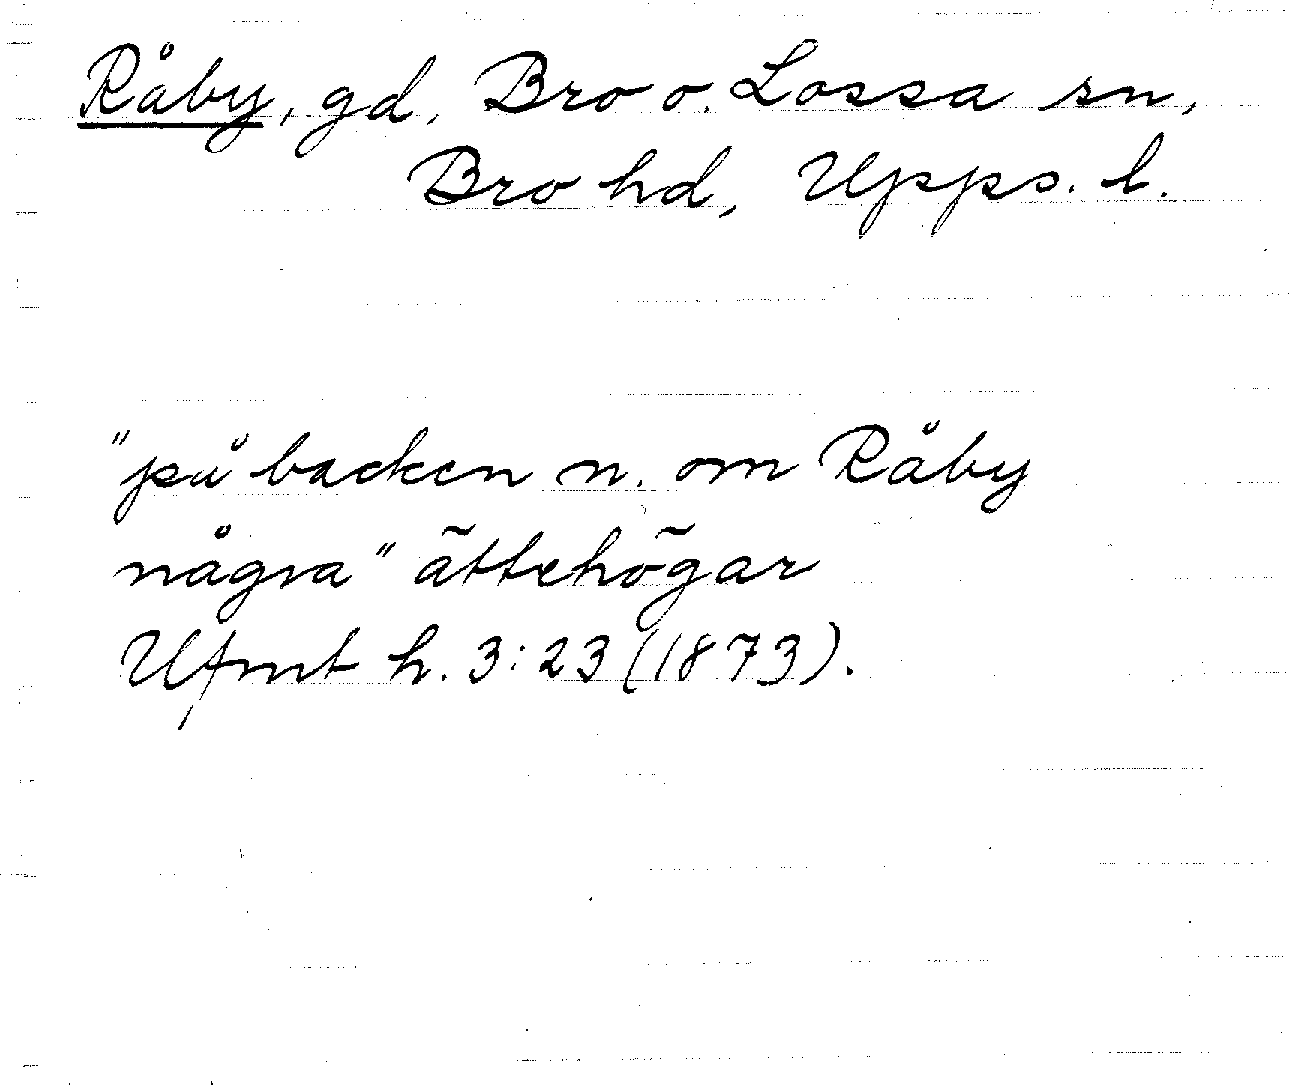 Råby, gd, Bro o. Lossa sn,
Bro hd, Upps. l.
"på backen n. om Råby
några" ättehögar
Ufmt h. 3:23 (1873).